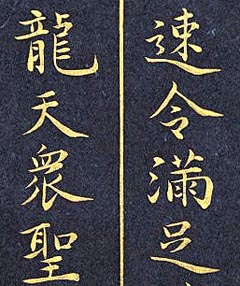 速令滿足
龍天衆聖